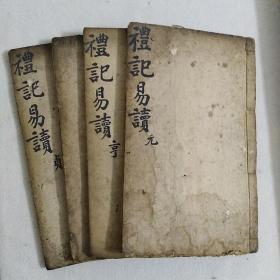 禮記易讀 元
禮記易讀 亨
禮記易讀 貞